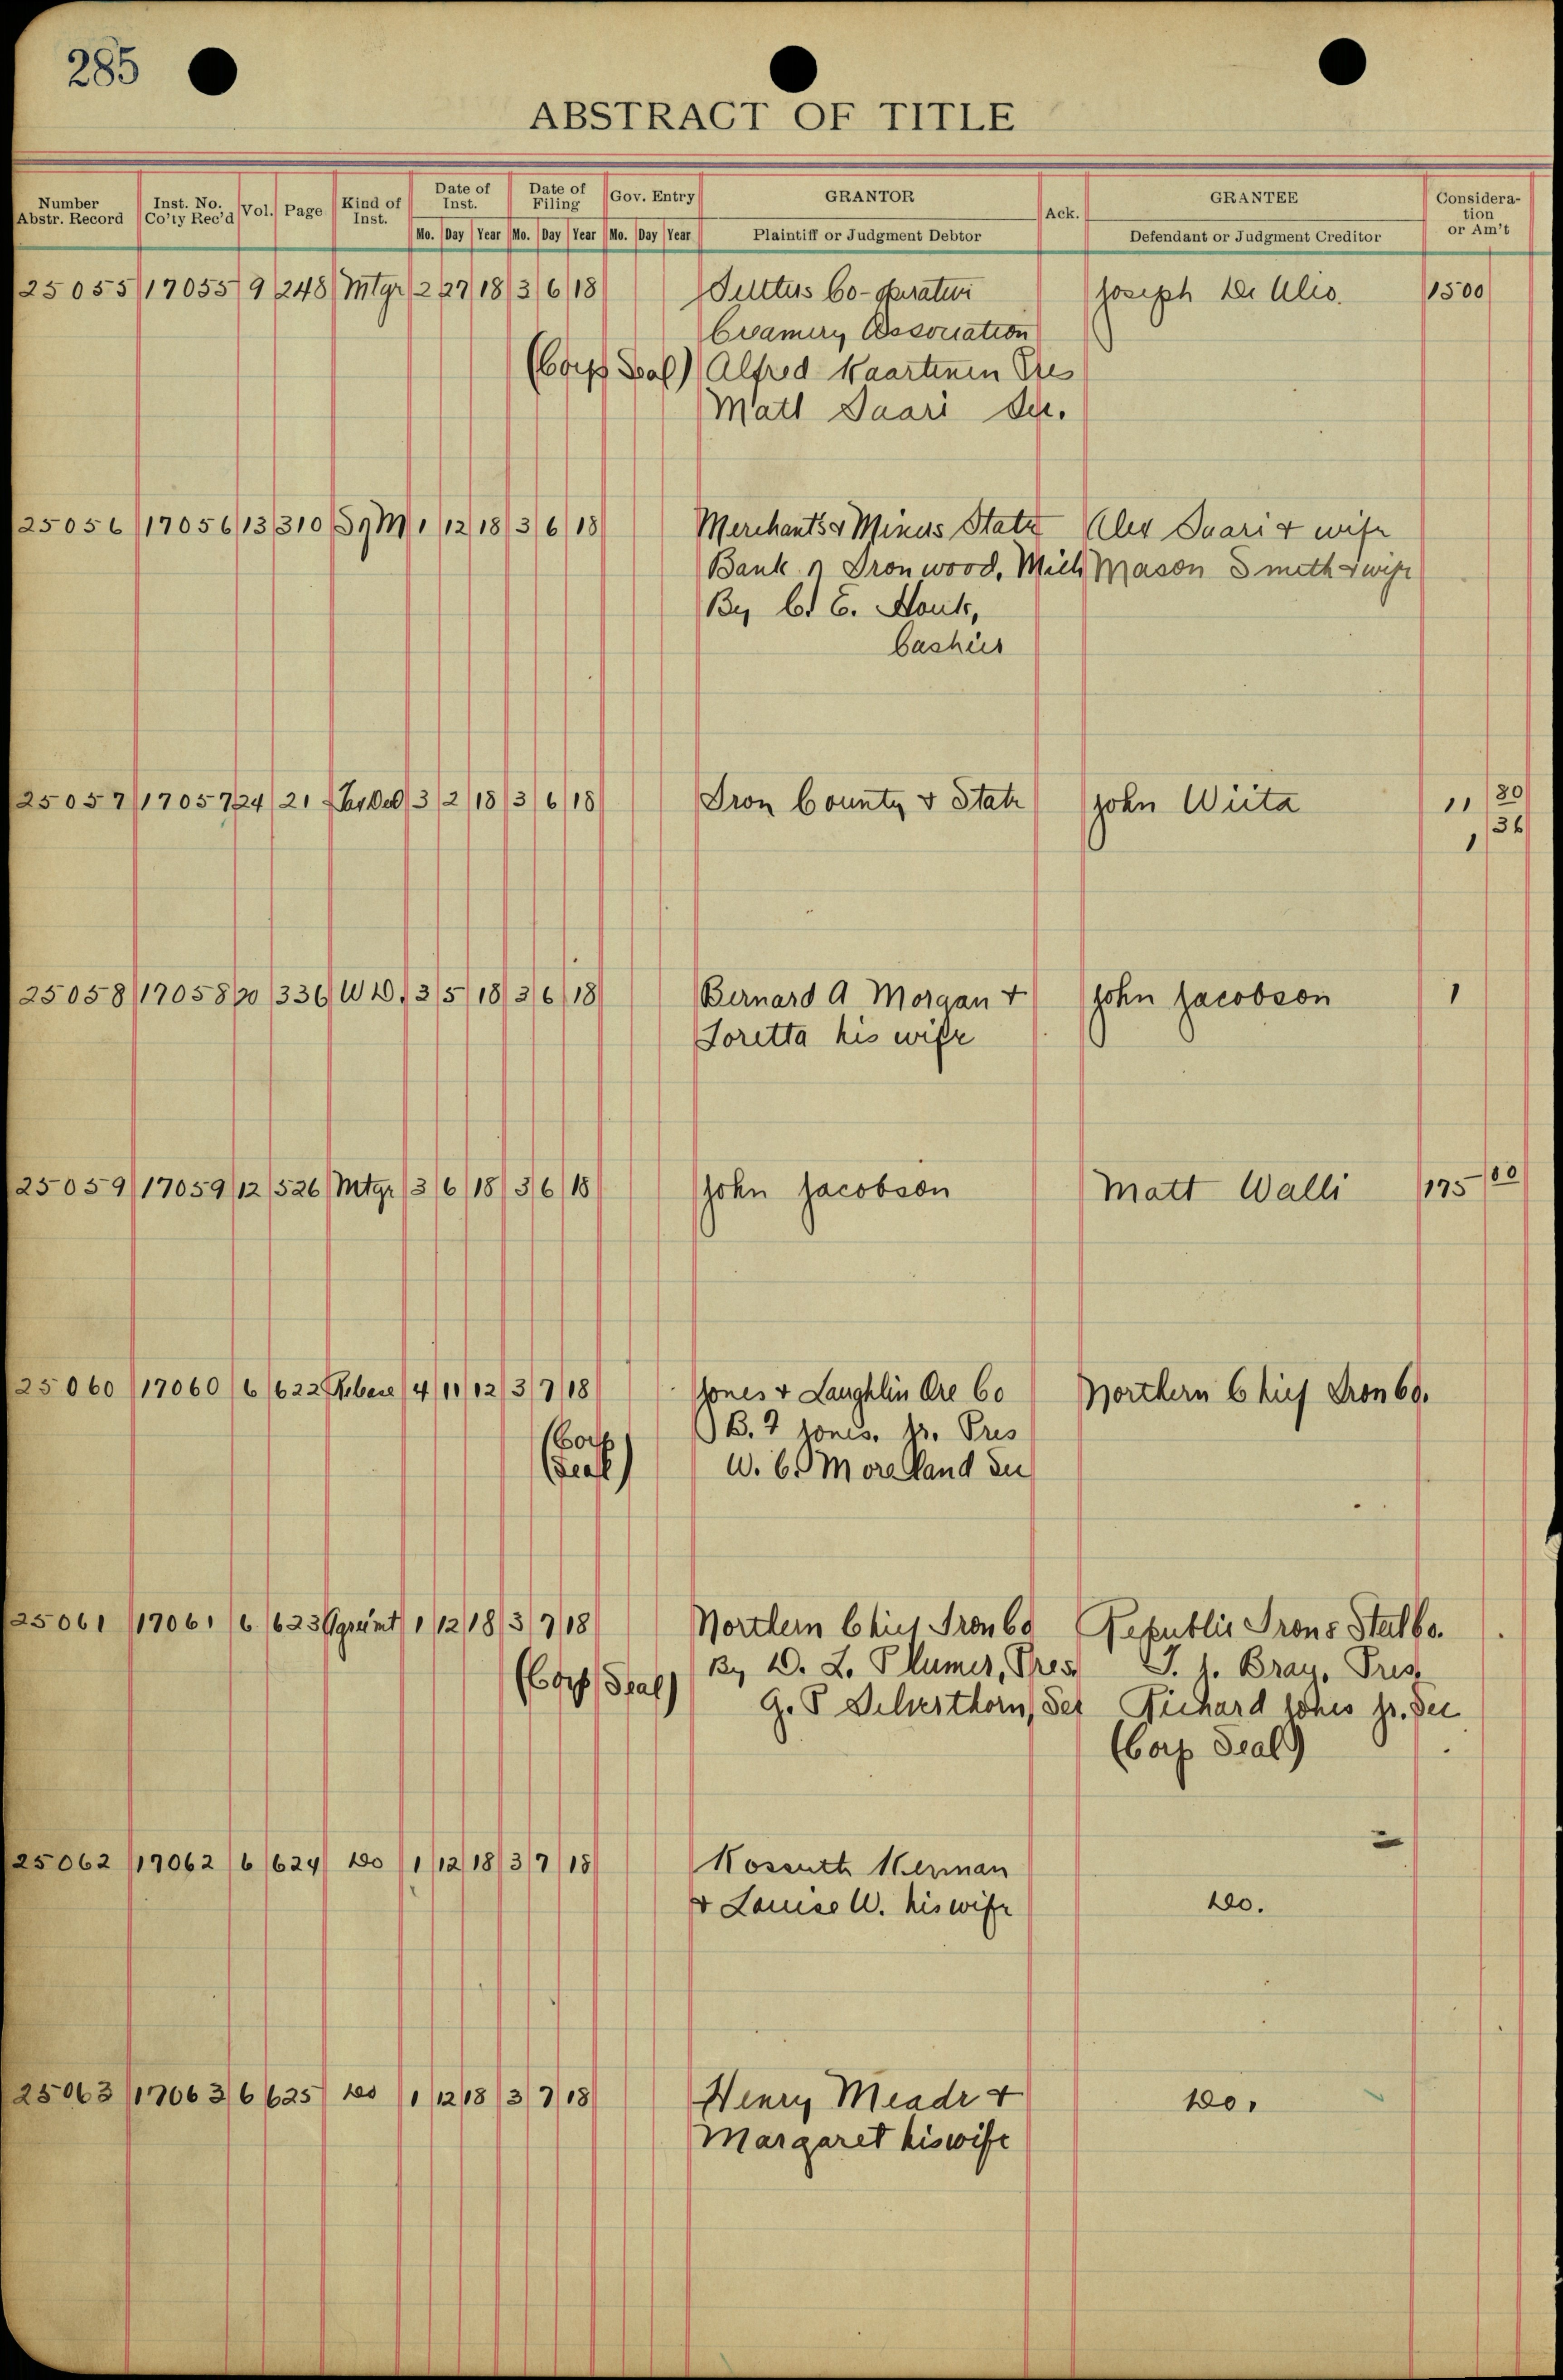 285
ABSTRACT OF TITLE
Number Abstr. Record | Inst. No. Co'ty Rec'd | Vol. | Page | Kind of Inst. | Date of Inst. | Date of Filing | Gov. Entry | GRANTOR | Ack. | GRANTEE | Consideration or Am't
Mo. Day Year Mo. Day Year Mo. Day Year Plaintiff or Judgment Debtor Defendant or Judgment Creditor
25055 17055 9 248 Mtge 2 27 18 3 6 18 Settlers Co-operative Joseph 1500
Creamery Association
(Corp Seal) Alfred Kaartinen Pres
Matt Saari Sec.
25056 17056 13 310 M 1 12 18 3 6 18 Merchants & Miners State Alex Saari & wife
Bank Ironwood, Mich Mason Smith & wife
By E. Houk,
Cashier
25057 17057 24 21 Tax Ded 3 2 18 3 6 18 Iron County & State John Wiita 11 80
1 36
25058 17058 20 336 W D. 3 5 18 3 6 18 Bernard A Morgan & John Jacobson 1
Loretta his wife
25059 17059 12 526 Mtge 3 6 18 3 6 18 John Jacobson Matt Walli 175 00
25060 17060 6 622 4 11 12 3 7 18 Jones & Laughlin Ore Co Northern Chief Iron Co.
(Corp B. F Jones, Jr. Pres
Seal) W. C. Moreland Sec
25061 17061 6 623 Agreemt 1 12 18 3 7 18 Northern Chief Iron Co Republic Iron & Steel Co.
(Corp Seal) By D. L. Plumer, Pres T. J. Bray, Pres
G. S Silverthorn, Sec Richard Jones Jr. Sec
(Corp Seal)
25062 17062 6 624 Do 1 12 18 3 7 18 Kossuth Kerman
& Louise W. his wife Do.
25063 17063 6 625 Do 1 12 18 3 7 18 Henry Meade & Do.
Margaret his wife